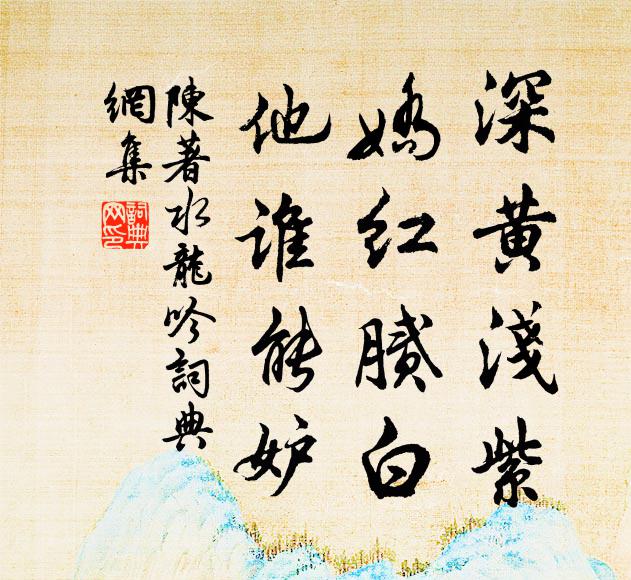 深黄淺紫
嬌紅膩白
他谁能妒
陳著水龍吟詞典
網集
詞典網印